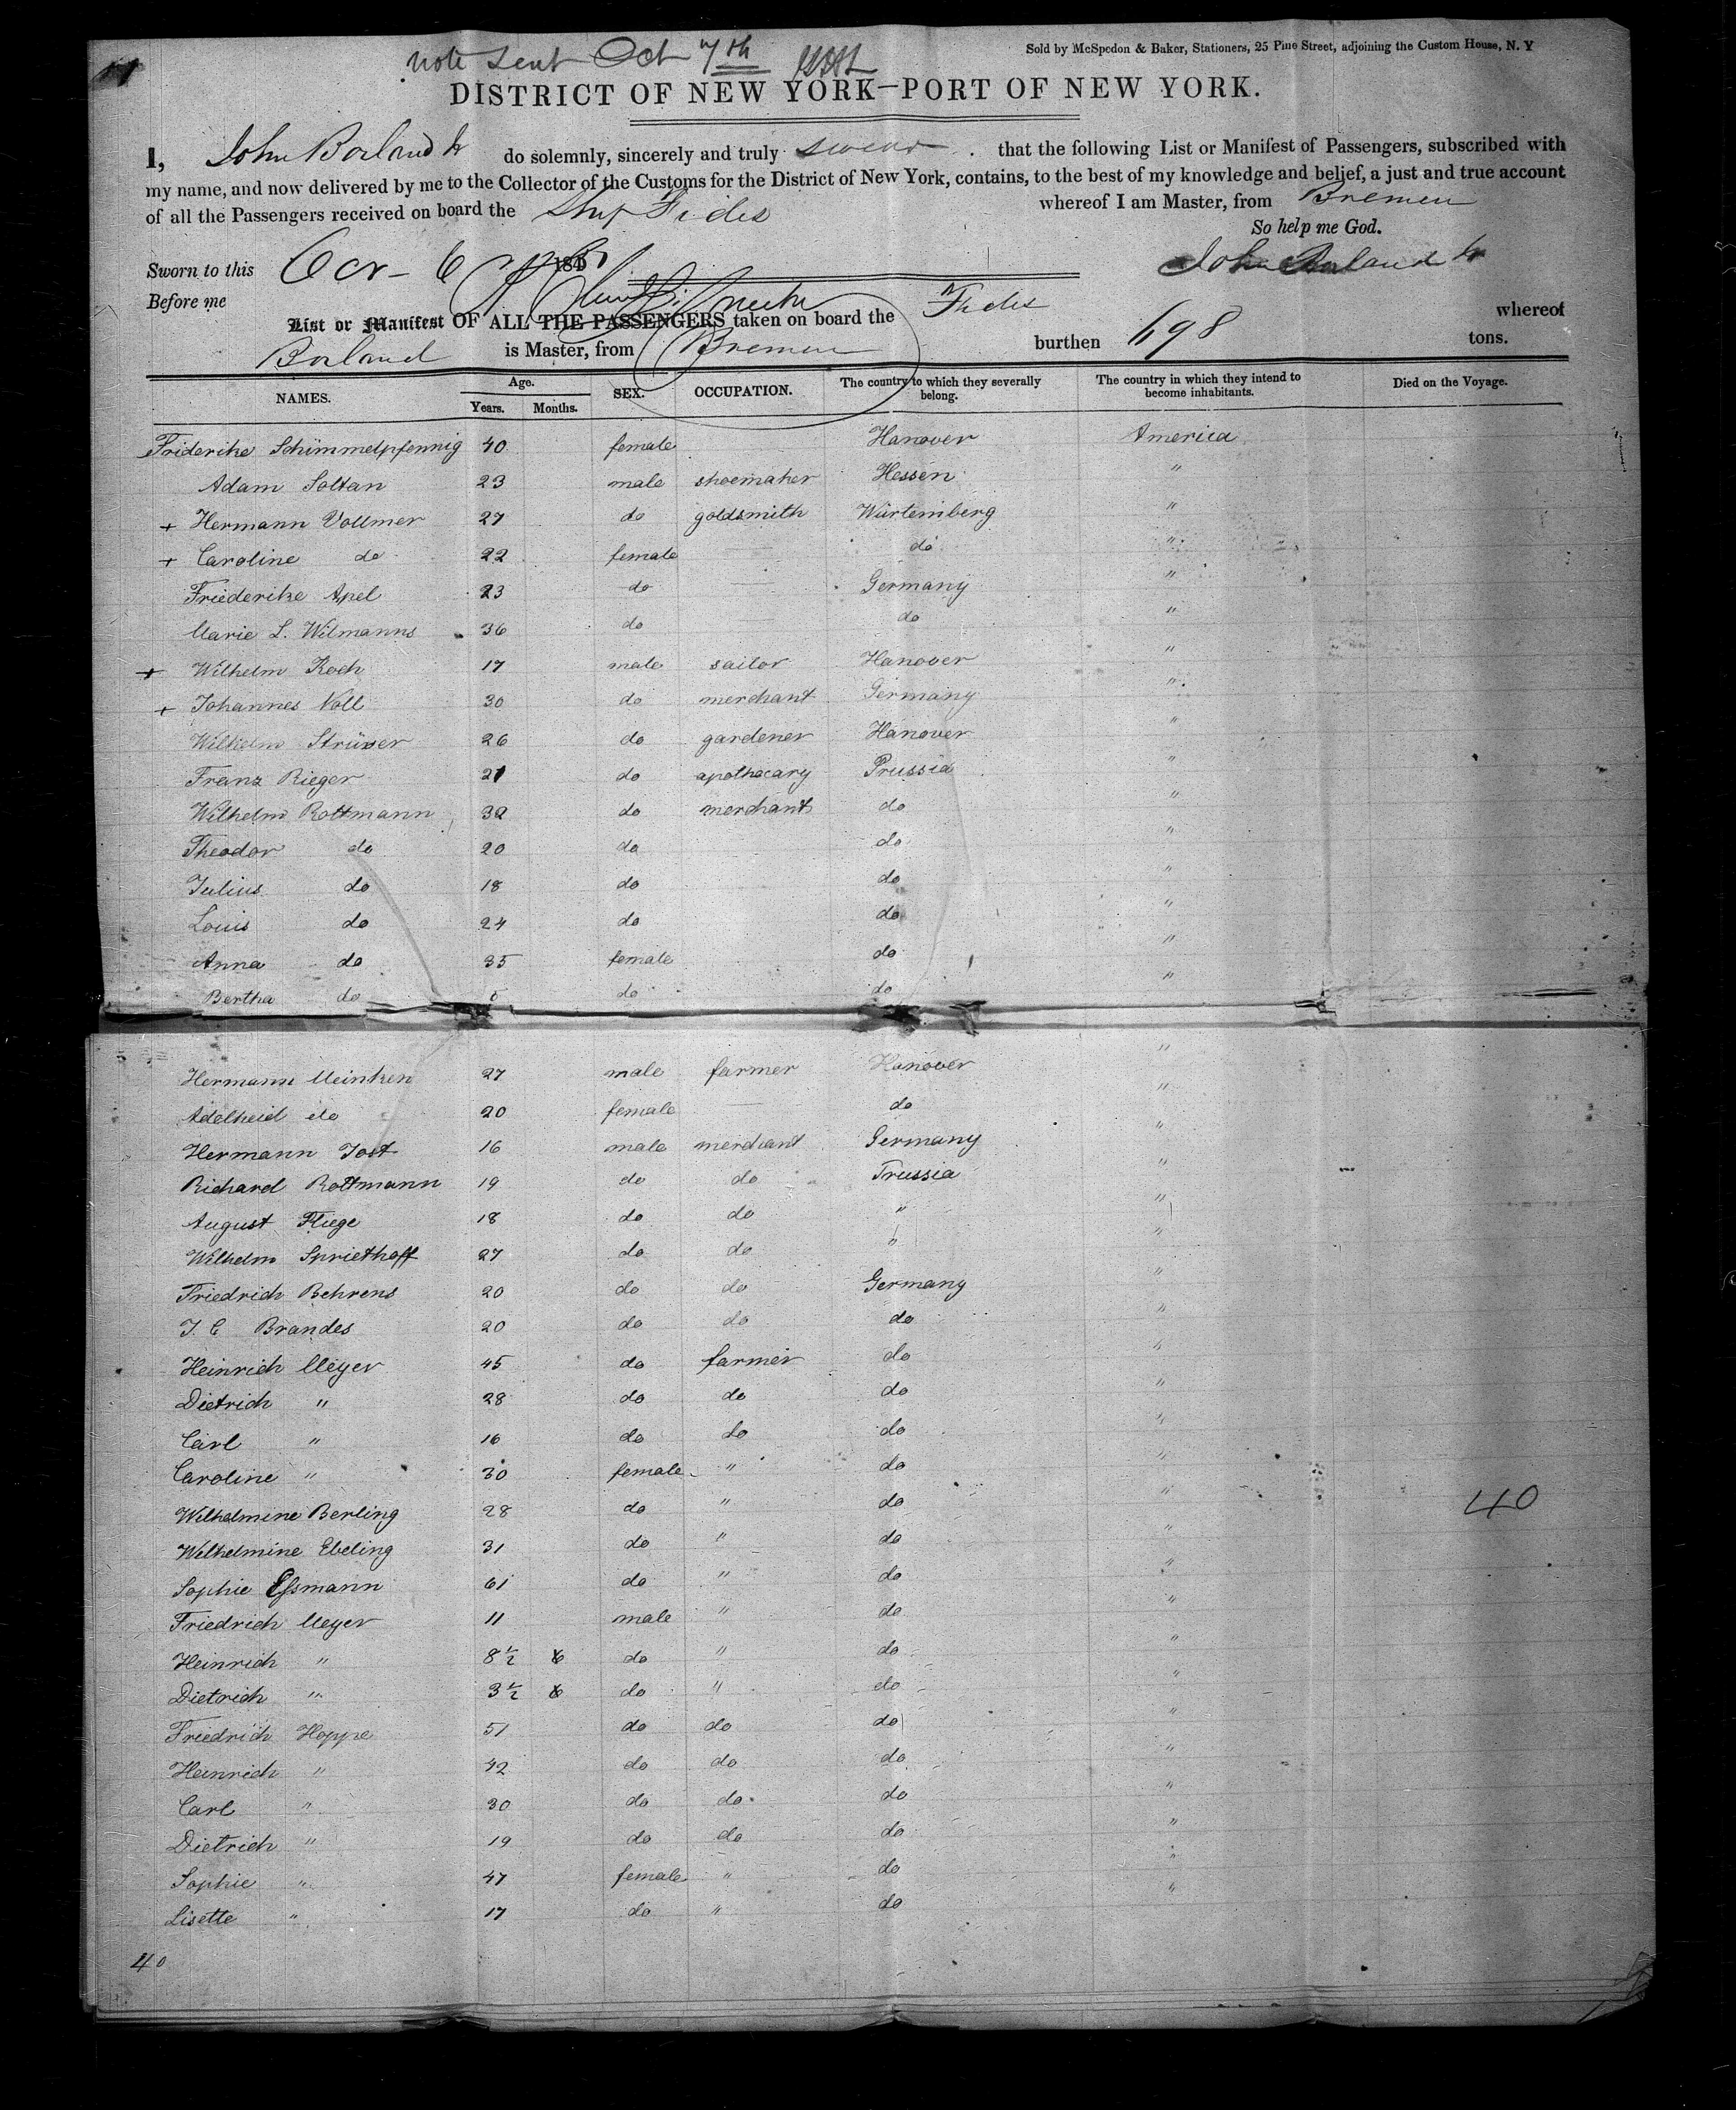 note sent Oct 7th
Sold by McSpedon & Baker, Stationers, 25 Pine Street, adjoining the Custom House, N. Y
DISTRICT OF NEW YORK—PORT OF NEW YORK.
I, John Borland Jr do solemnly, sincerely and truly swear . that the following List or Manifest of Passengers, subscribed with
my name, and now delivered by me to the Collector of the Customs for the District of New York, contains, to the best of my knowledge and belief, a just and true account
of all the Passengers received on board the Ship Fides whereof I am Master, from Bremen
So help me God.
Sworn to this Oct - 6 184 John Borland Jr
Before me
List or Manifest OF ALL THE PASSENGERS taken on board the Fides whereof
Borland is Master, from Bremen burthen 698 tons.
NAMES. Age. Years. Months. SEX. OCCUPATION. The country to which they severally belong. The country in which they intend to become inhabitants. Died on the Voyage.
Friderike Schimmelpfennig 40 female Hanover America
Adam Soltan 23 male shoemaker Hessen "
+ Hermann Vollmer 27 do goldsmith Würtemberg "
+ Caroline do 22 female — do "
Friederike Apel 23 do — Germany "
Marie L. Wilmanns 36 do — do "
+ Wilhelm Koch 17 male sailor Hanover "
+ Johannes Noll 30 do merchant Germany "
Wilhelm Strüver 26 do gardener Hanover "
Franz Rieger 21 do apothecary Prussia "
Wilhelm Rottmann 32 do merchant do "
Theodor do 20 do do "
Julius do 18 do do "
Louis do 24 do do "
Anna do 35 female do "
Bertha do 5 do do "
Hermann Meinken 27 male farmer Hanover "
Adelheid do 20 female — do "
Hermann Jost 16 male merchant Germany "
Richard Rottmann 19 do do Prussia "
August Fliege 18 do do " "
Wilhelm Spriethoff 27 do do " "
Friedrich Behrens 20 do do Germany "
J. C Brandes 20 do do do "
Heinrich Meyer 45 do farmer do "
Dietrich " 28 do do do "
Carl " 16 do do do "
Caroline " 30 female " do "
Wilhelmine Berling 28 do " do " 40
Wilhelmine Ebeling 31 do " do "
Sophie Eßmann 61 do " do "
Friedrich Meyer 11 male " do "
Heinrich " 8½ 6 do " do "
Dietrich " 3½ 6 do " do "
Friedrich Hoppe 51 do do do "
Heinrich " 42 do do do "
Carl " 30 do do do "
Dietrich " 19 do do do "
Sophie " 47 female " do "
Lisette " 17 do " do "
40